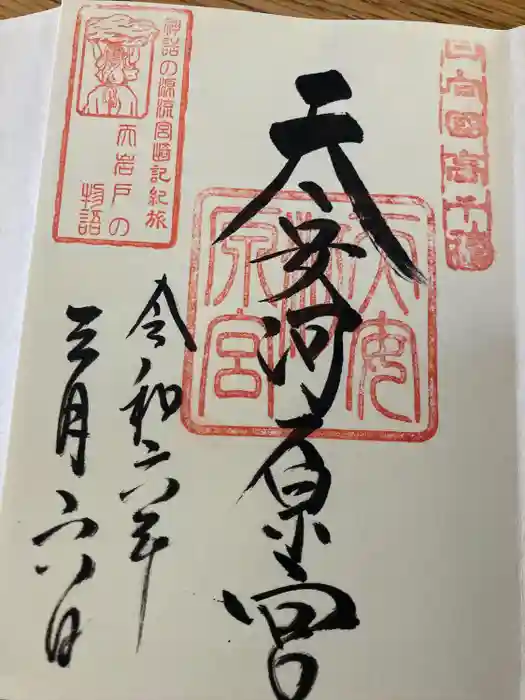 日向國高千穂
天安河原宮
天安
河
原宮
神話の源流宮崎記紀旅
天岩戸の
物語
令和六年
三月六日